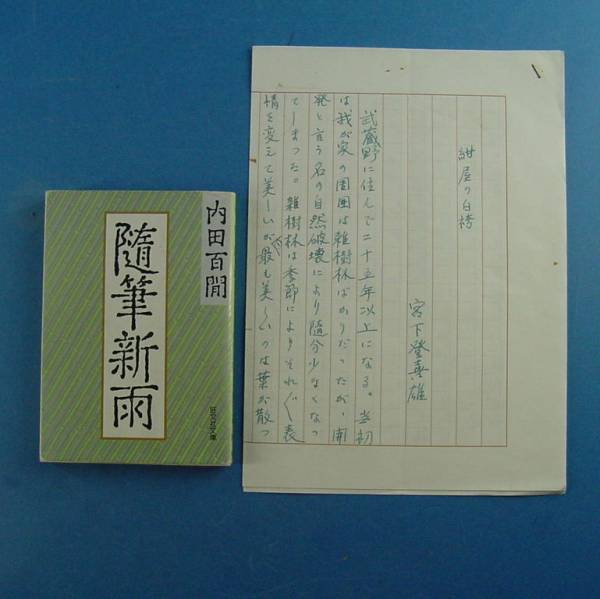 内田百閒
隨筆新雨
旺文社文庫
紺屋の白袴
宮下登喜雄
武蔵野に住んで二十五年以上になる。当初
は我が家の周囲は雑樹林ばかりだったが、開
発と言う名の自然破壊により随分少なくなっ
てしまった。雑樹林は季節によりそれ〴〵表
情を変えて美しいが最も美しいのは葉が散つ